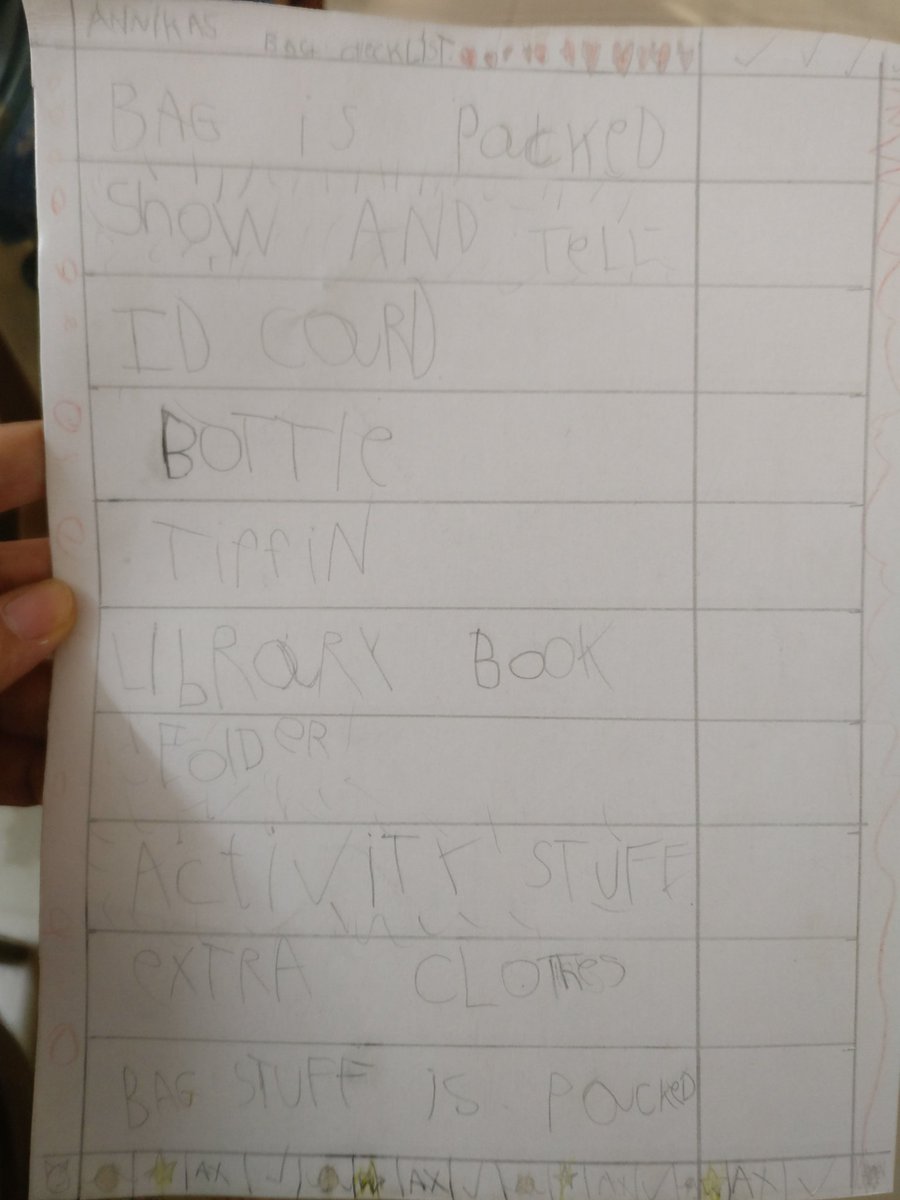 ANNIKAS BAG CHECKLIST
BAG is PacKeD
ShoW AND TeLL
ID CaRD
BOTTle
TiffiN
LIbRaRY BooK
FolDeR
ActiViTY STUFF
eXTRA CLOTHes
BAG STUFF iS PacKeD
AX AX AX AX